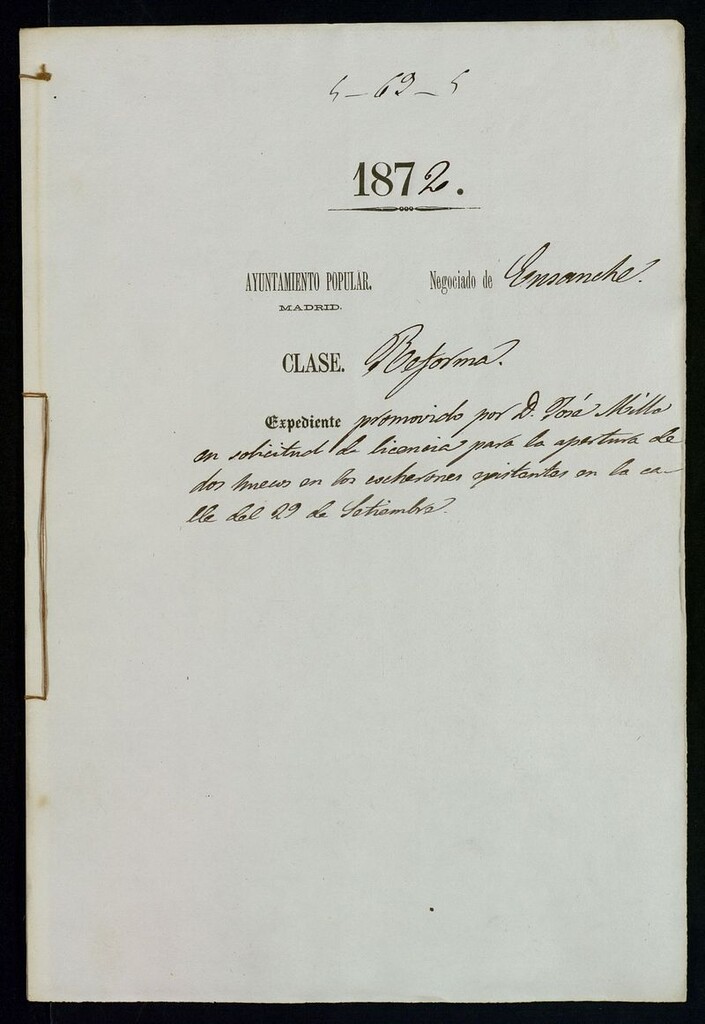 5-63-5
1872.
AYUNTAMIENTO POPULAR. Negociado de Ensanche.
MADRID.
CLASE. Reforma.
Expediente promovido por D. José Milla
en solicitud de licencia para la apertura de
dos huecos en los cocherones existentes en la ca-
lle del 29 de Setiembre.